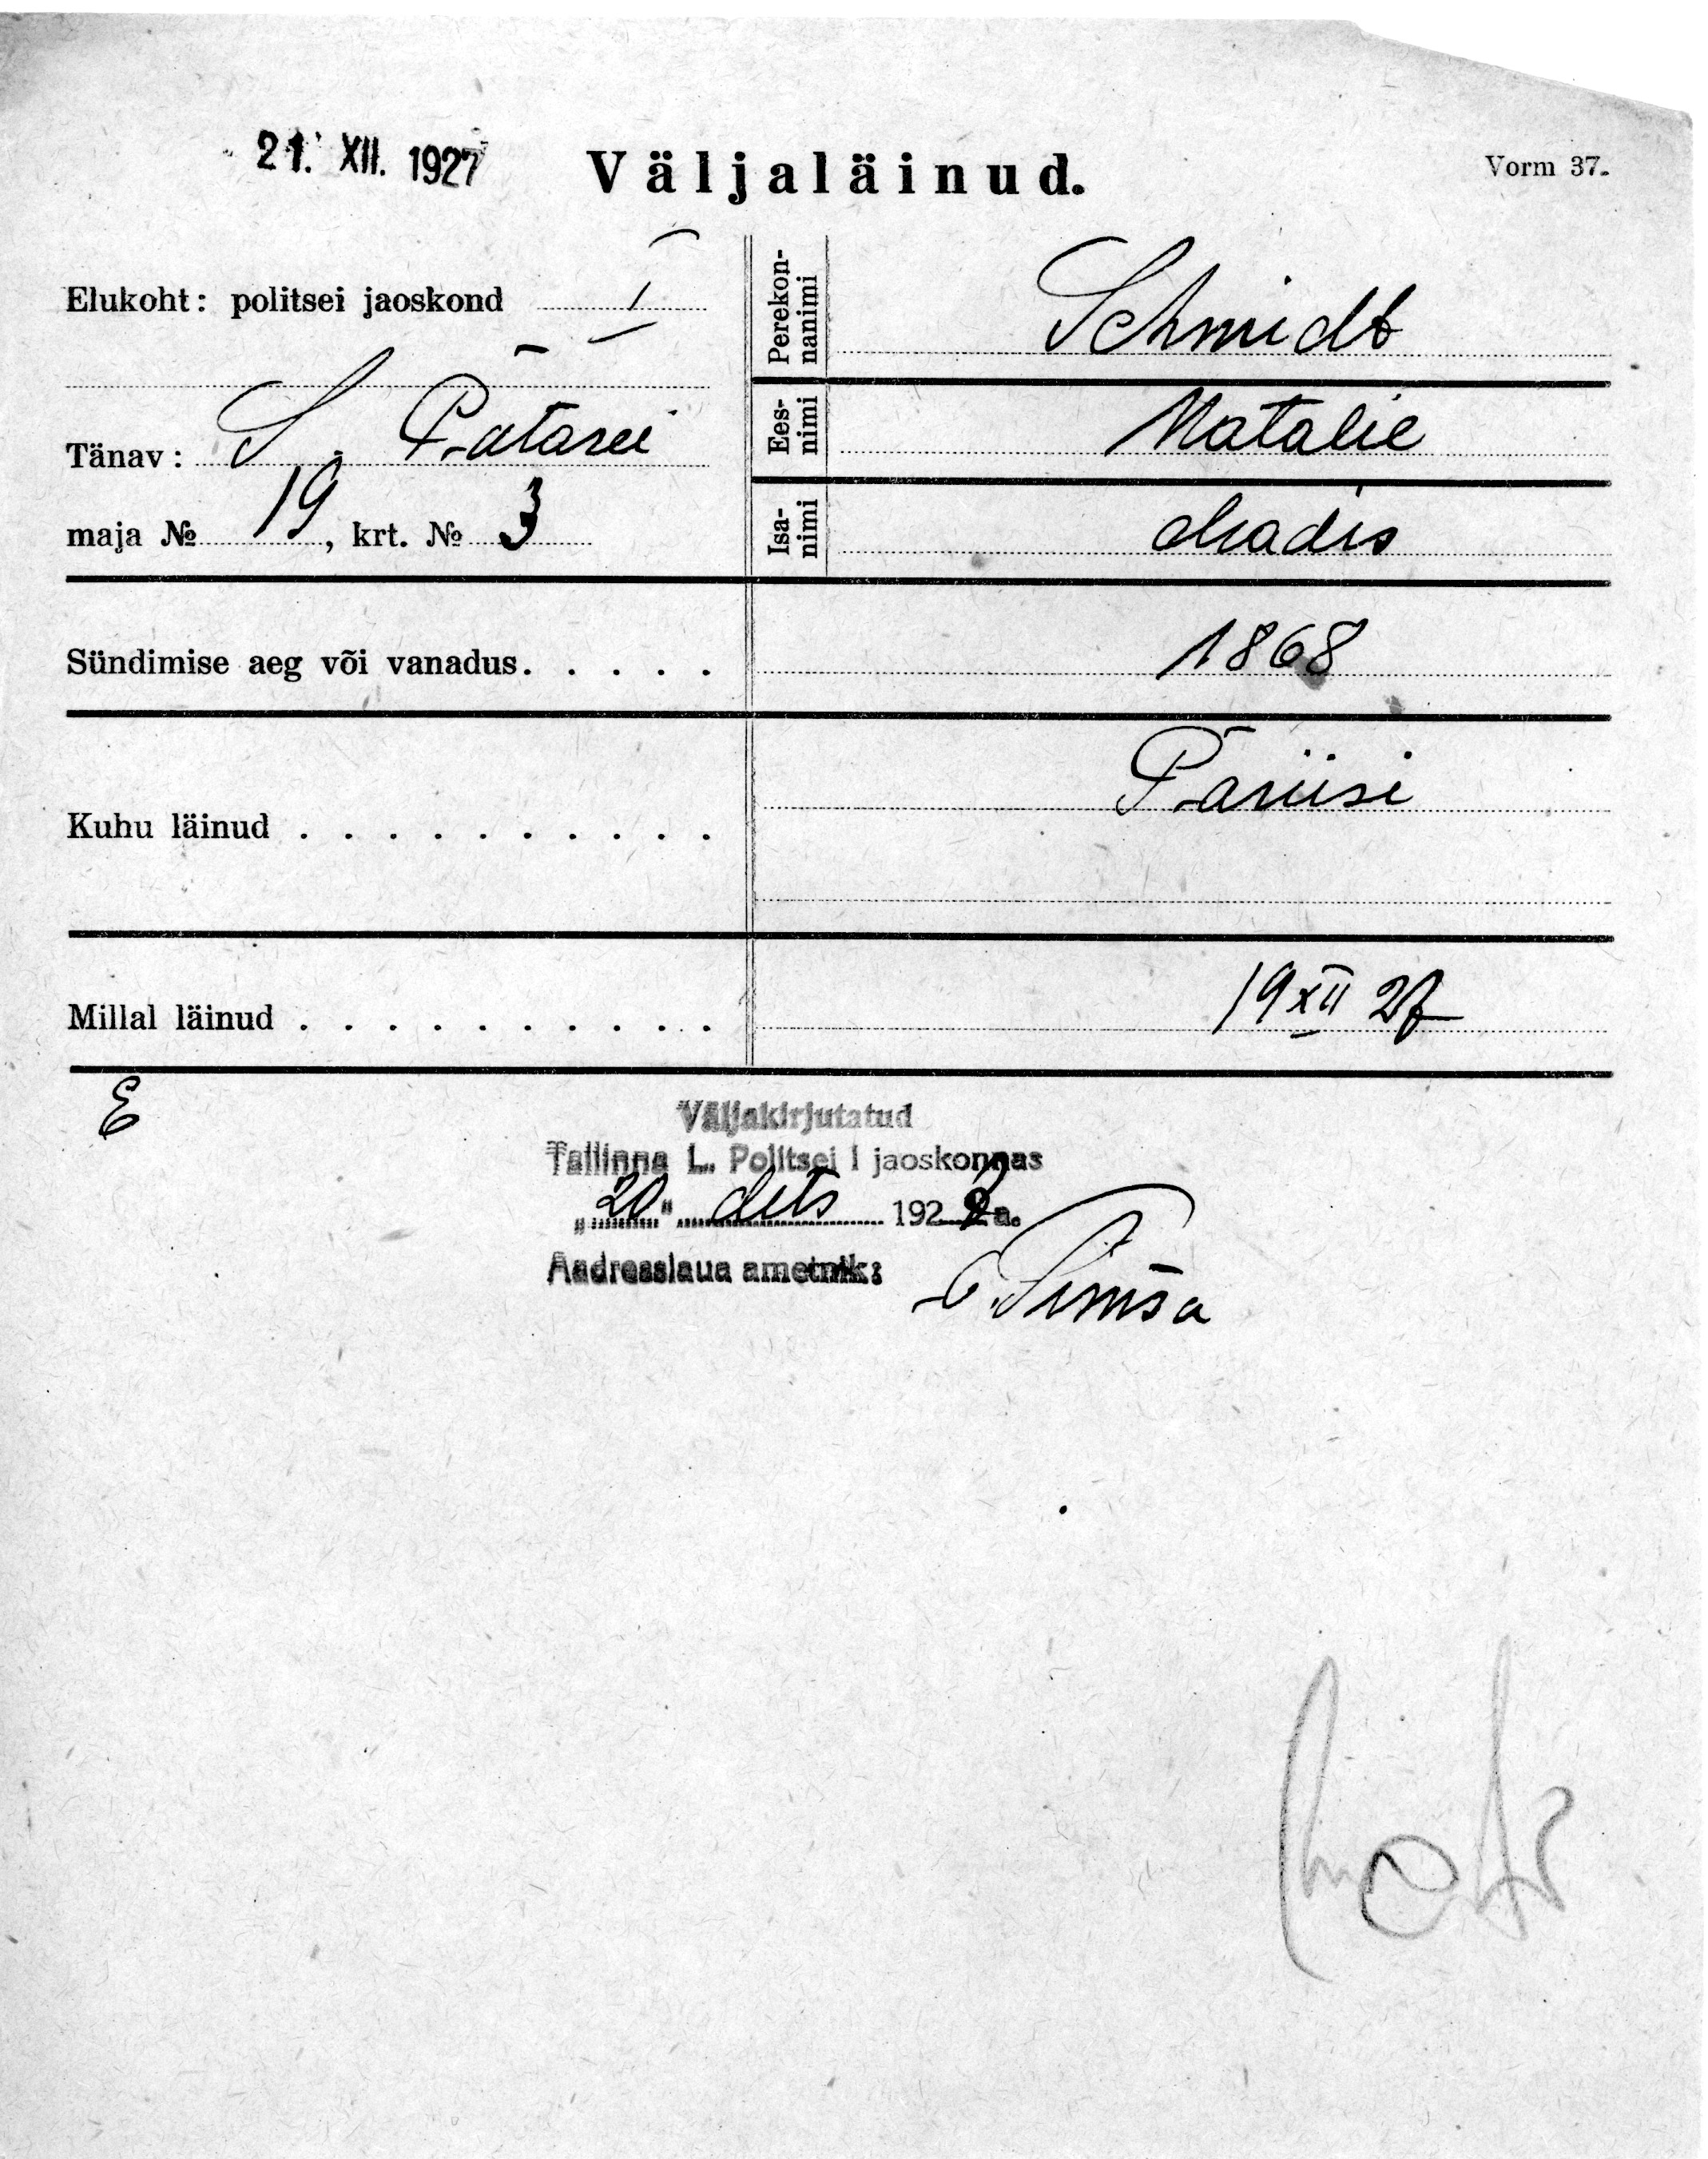 21. XII. 1927
Väljaläinud.
Vorm 37.
Elukoht: politsei jaoskond I
Tänav: S. Patarei
maja № 19, krt. № 3
Perekon-
nanimi
Schmidt
Ees-
nimi
Natalie
Isa-
nimi
Madis
Sündimise aeg või vanadus. . . . . 1868
Kuhu läinud . . . . . . . . . . Pariisi
Millal läinud . . . . . . . . . . 19 XII 27
E
Väljakirjutatud
Tallinna L. Politsei I jaoskonnas
„20" dets 1927 a.
Aadresslaua ametnik: